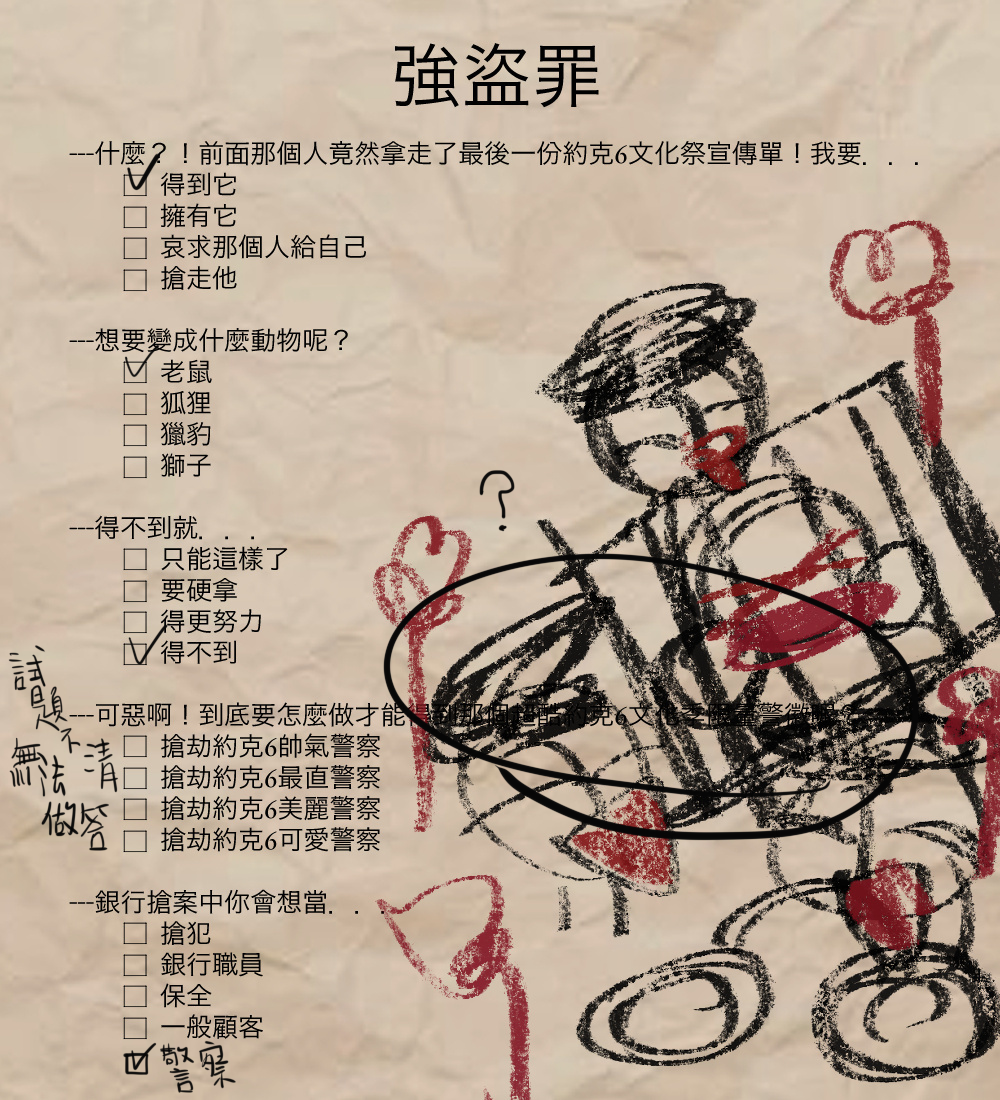 強盜罪
---什麼？！前面那個人竟然拿走了最後一份約克6文化祭宣傳單！我要．．．
☑ 得到它
□ 擁有它
□ 哀求那個人給自己
□ 搶走他
---想要變成什麼動物呢？
☑ 老鼠
□ 狐狸
□ 獵豹
□ 獅子
---得不到就．．．
□ 只能這樣了
□ 要硬拿
□ 得更努力
☑ 得不到
?
試題不清
無法做答
---可惡啊！到底要怎麼做才能得到那個超酷約克6文化祭限量警徽
□ 搶劫約克6帥氣警察
□ 搶劫約克6最直警察
□ 搶劫約克6美麗警察
□ 搶劫約克6可愛警察
---銀行搶案中你會想當．．．
□ 搶犯
□ 銀行職員
□ 保全
□ 一般顧客
☑ 警察